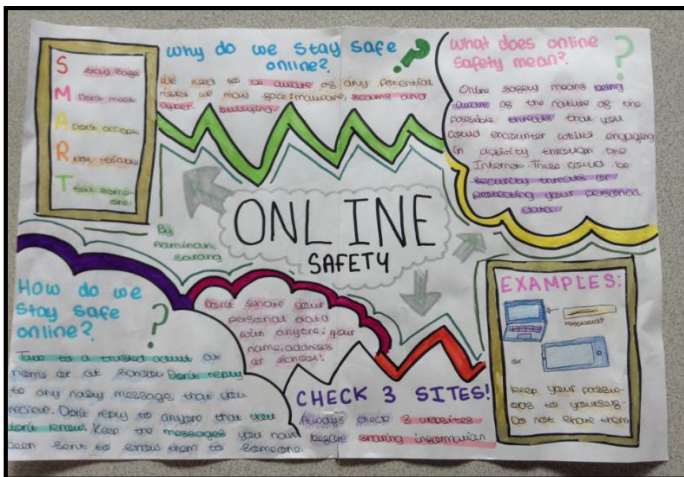 S Stay safe
M Don't meet
A Don't accept
R Reliable
T Tell some-
one.
Why do we stay safe
online?
We need to be aware of any potential
risks we may face: malware, scams and
cyber bullying.
What does online
safety mean?
Online safety means being
aware of the nature of the
possible threats that you
could encounter whilst engaging
in activity through the
Internet. These could be
security threats or
protecting your personal
data.
ONLINE
SAFETY
By
Sarang
How do we
stay safe
online?
Talk to a trusted adult at
home or at school. Don't reply
to any nasty message that you
recieve. Don't reply to anyone that you
don't know. Keep the messages you have
been sent to show them to someone.
Don't share your
personal data
with anyone; your
name, address
or school!
CHECK 3 SITES!
Always check 3 websites
before sharing information
EXAMPLES:
or
keep your passw-
ords to yourself-
Do not share them